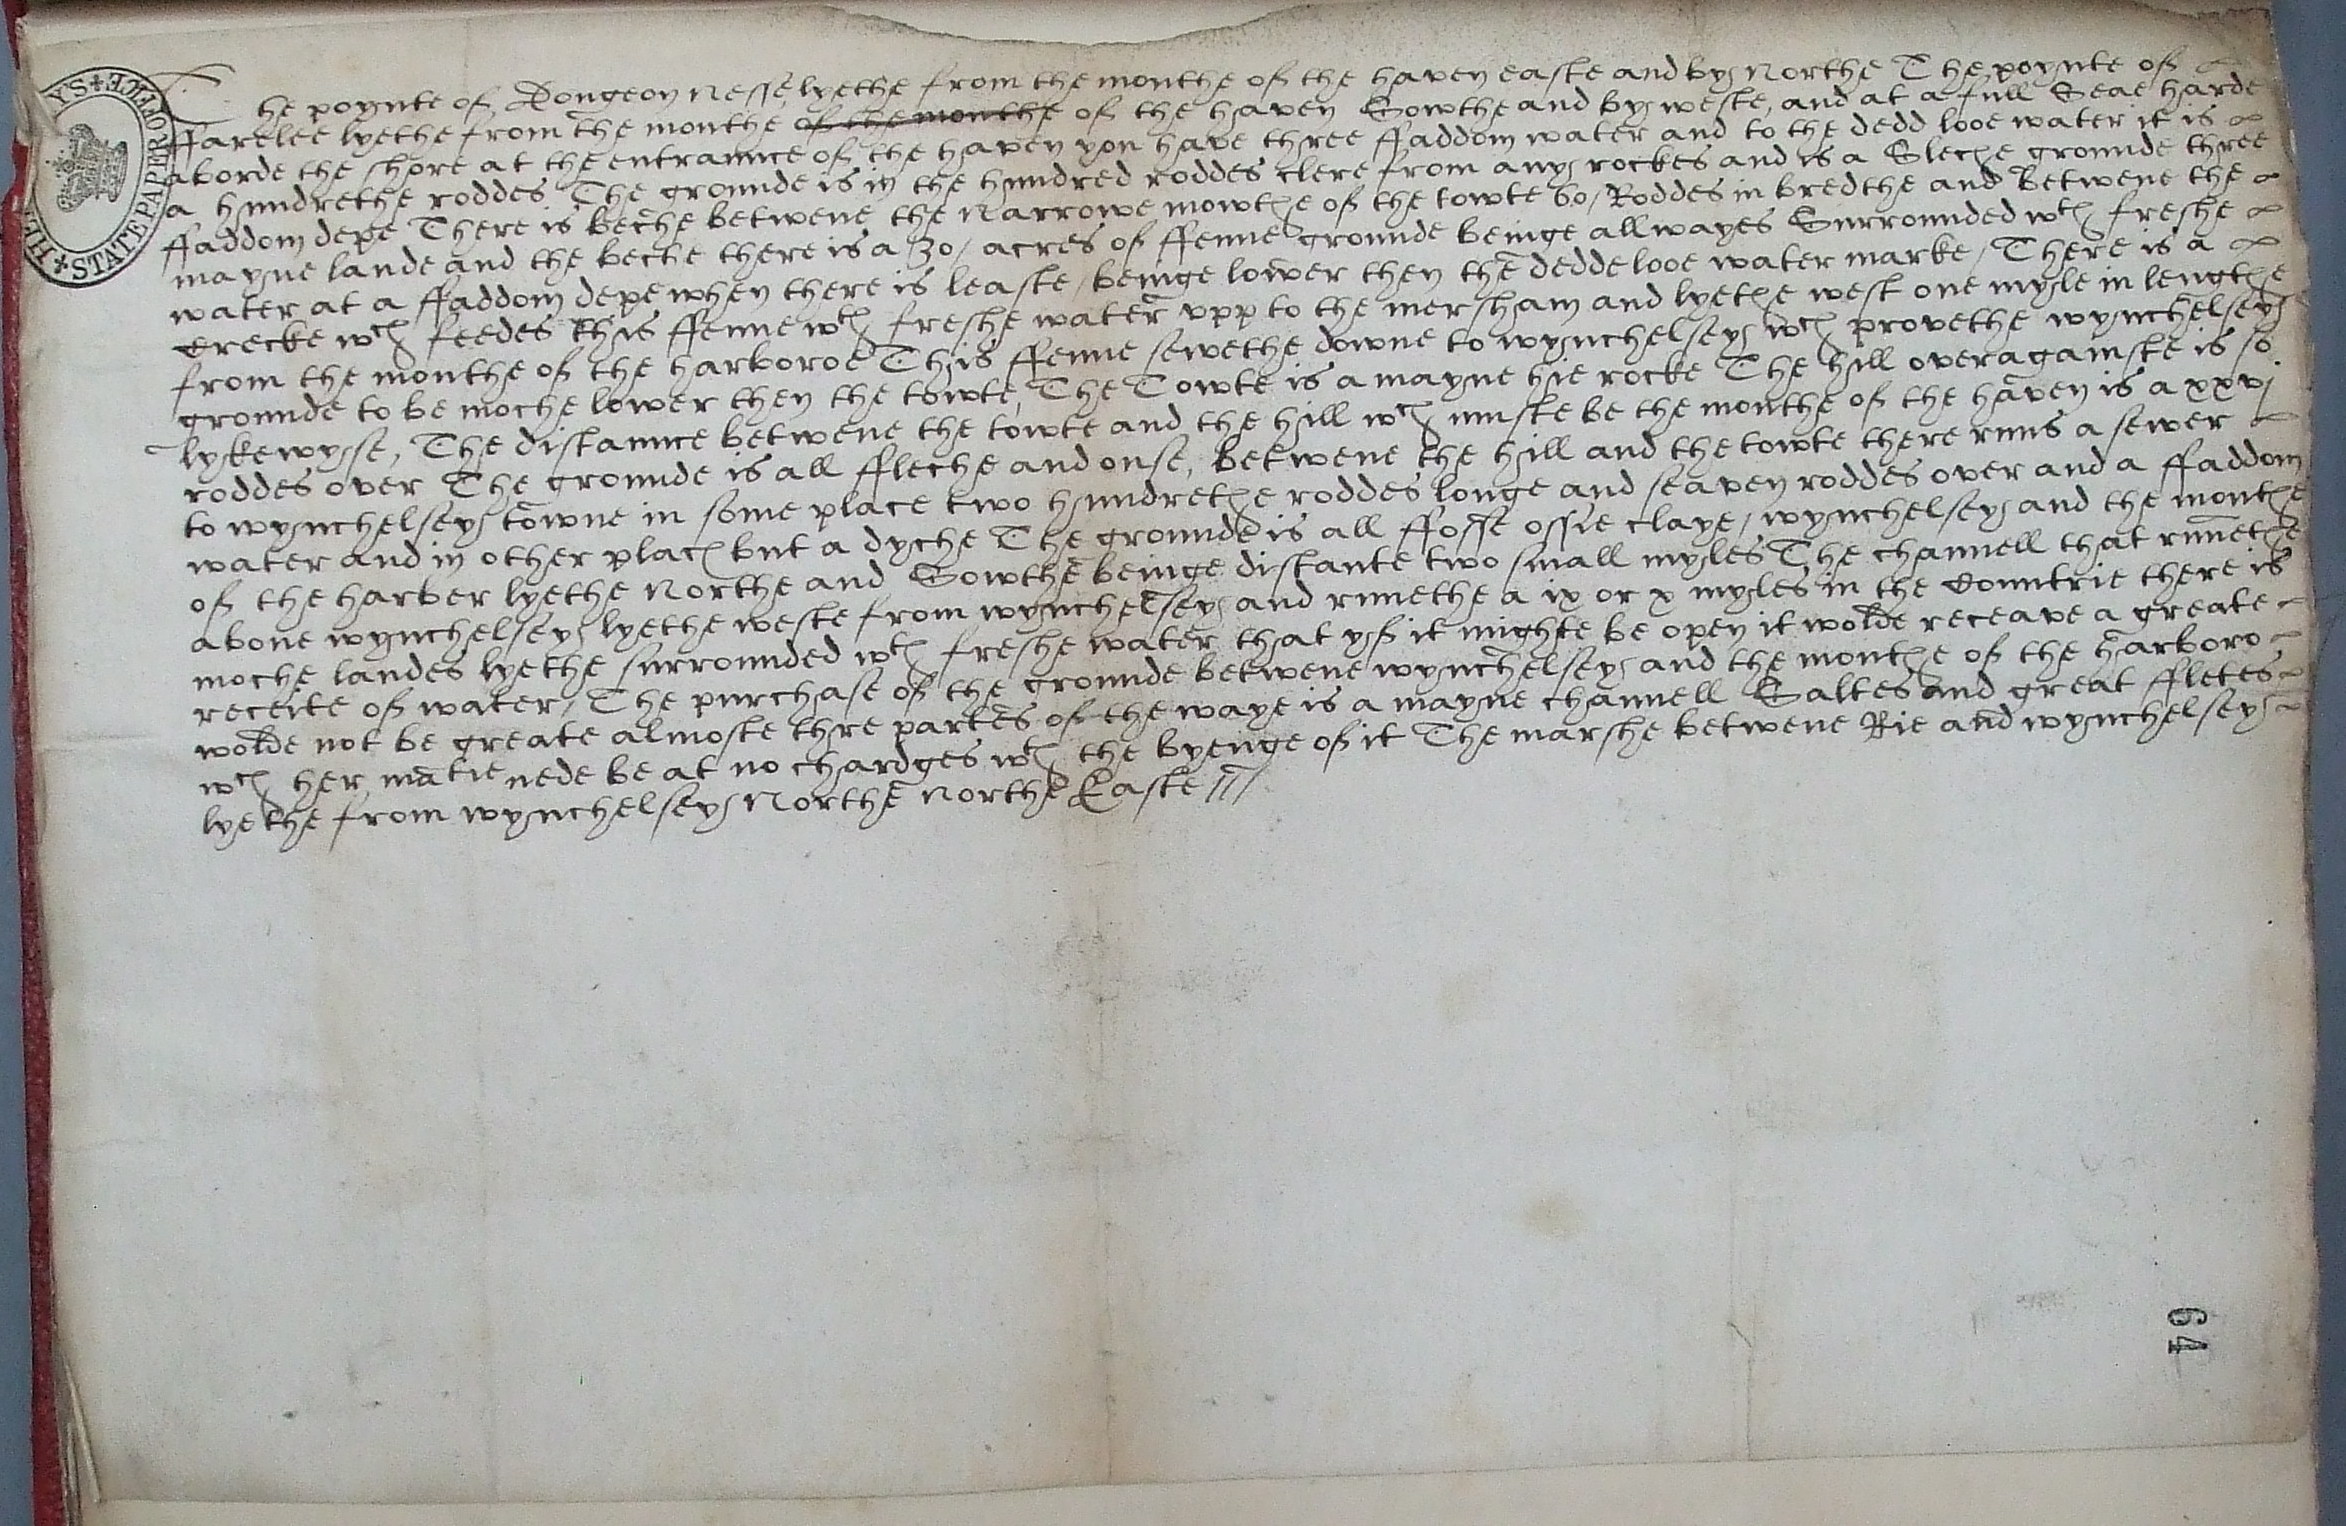 The poynte of Dongeon Nesse lyethe from the mouthe of the haven easte and by Northe The poynte of
ffarelee lyethe from the mouthe of the mouthe of the haven Sowthe and by weste, and at a full Seae harde
aborde the shore at the entraunce of the haven you have three ffaddom water and to the dedd looe water it is
a hundrethe roddes The grounde is in the hundred roddes clere from any rockes and is a Sleche grounde three
ffaddom depe There is beche betwene the Narrowe mowthe of the towte 60, Roddes in bredthe and Betwene the
mayne lande and the beche there is a 30, acres of ffenne grounde beinge allwayes Surrounded wth freshe
water at a ffaddom depe when there is leaste, beinge lower then the dedde looe water marke, There is a
Crecke wch feedes this ffenne wth freshe water vpp to the mersham and lyethe west one myle in lengthe
from the mouthe of the harboroe This ffenne sewethe downe to wynchelsey wch provethe wynchelsey
grounde to be moche lower then the towte, The Towte is a mayne hie rocke The hill overagainste is so
lykewyse, The distaunce betwene the towte and the hill wch muste be the mouthe of the haven is a xxvj
roddes over The grounde is all ffleche and ouse, betwene the hill and the towte there runs a sewer
to wynchelsey towne in some place two hundrethe roddes longe and seaven roddes over and a ffaddom
water and in other places but a dyche The grounde is all ffosse ossie claye, wynchelsey and the mouthe
of the harber lyethe Northe and Sowthe beinge distante two small myles The channell that runnethe
aboue wynchelsey lyethe weste from wynchelsey and runethe a ix or x myles in the Countrie there is
moche landes lyethe surrounded wth freshe water that yf it mighte be open it wolde receave a greate
receite of water, The purchase of the grounde betwene wynchelsey and the mouthe of the harboro
wolde not be greate almoste thre partes of the waye is a mayne channell Saltes and great ffletes
wch her matie nede be at no chardges wth the byenge of it The marshe betwene Rie and wynchelsey
lyethe from wynchelsey Northe Northe Easte //
STATE PAPER OFFICE
64